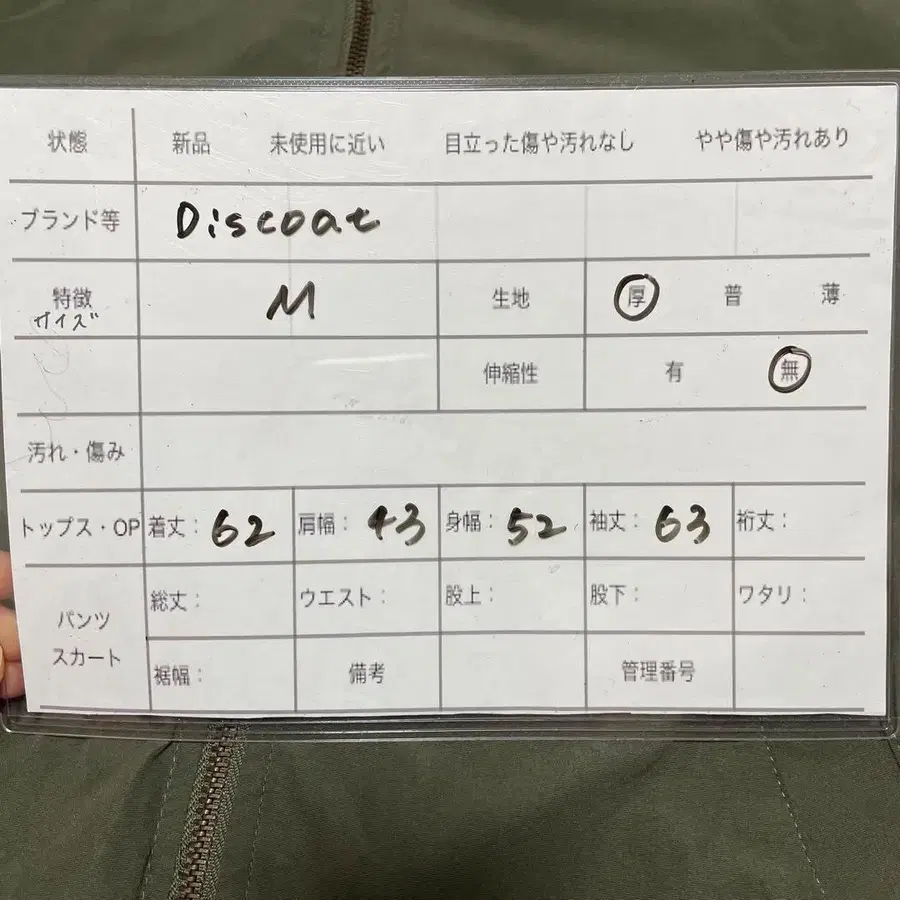 状態 新品 未使用に近い 目立った傷や汚れなし やや傷や汚れあり
ブランド等 Discoat
特徴 M 生地 厚 普 薄
サイズ
伸縮性 有 無
汚れ・傷み
トップス・OP 着丈: 62 肩幅: 43 身幅: 52 袖丈: 63 裄丈:
パンツ
スカート
総丈: ウエスト: 股上: 股下: ワタリ:
裾幅: 備考 管理番号